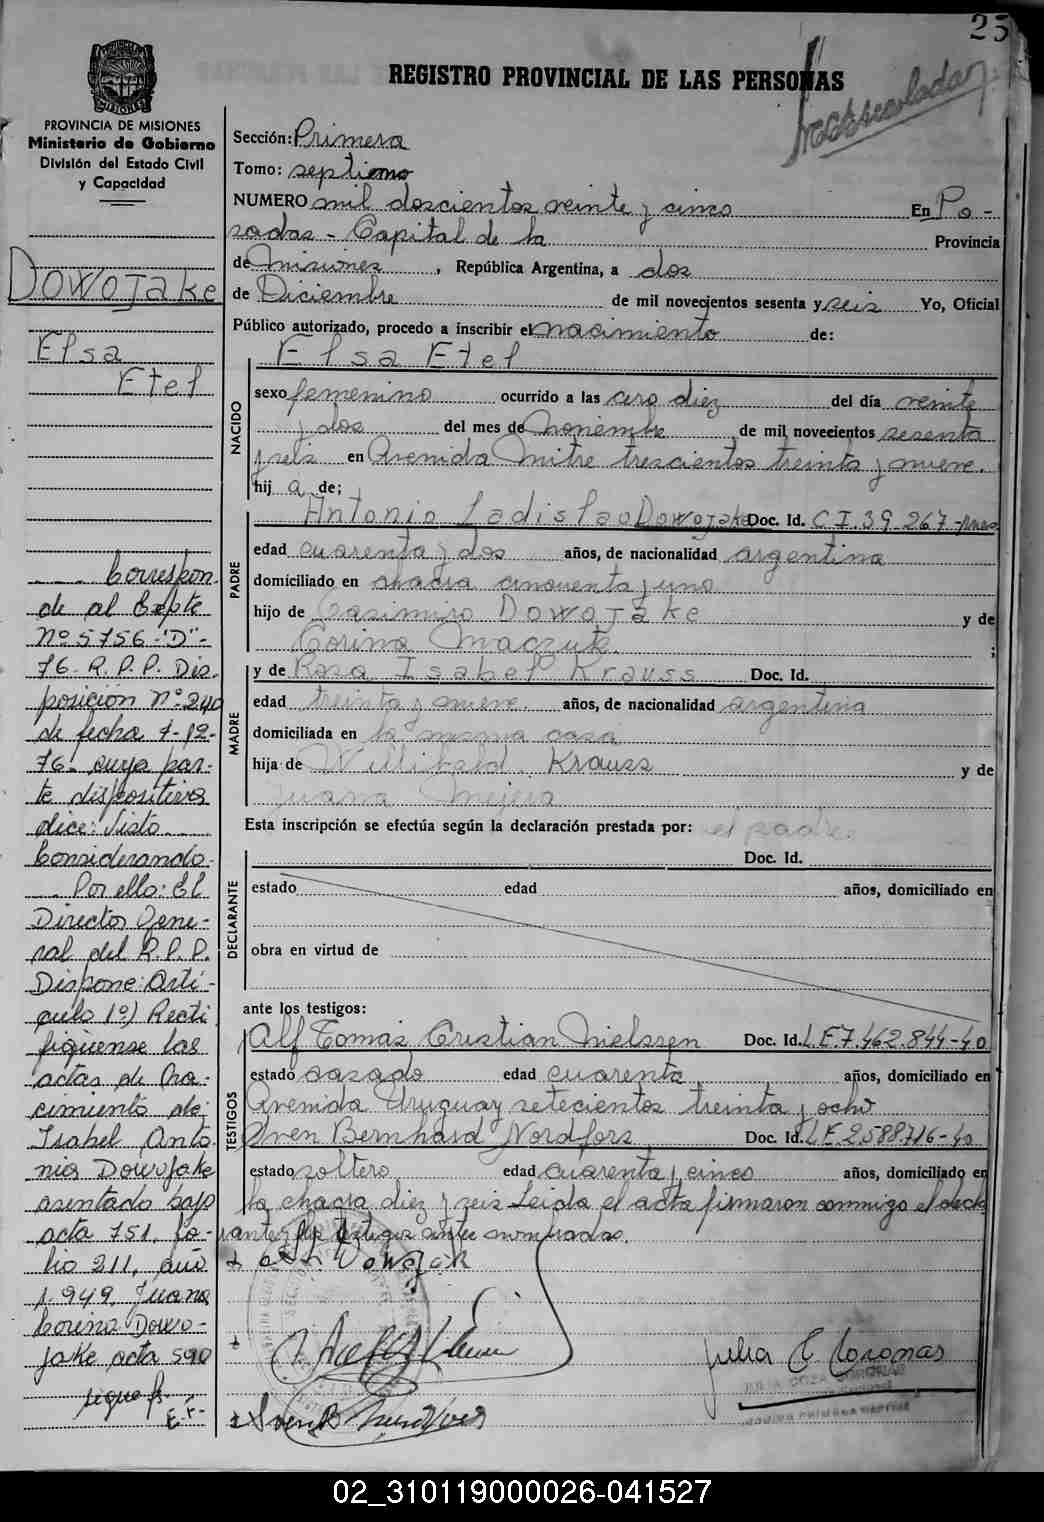 25
REGISTRO PROVINCIAL DE LAS PERSONAS
PROVINCIA DE MISIONES
Ministerio de Gobierno
División del Estado Civil
y Capacidad
Dowojake
Elsa
Etel
Correspon
de al Expte
Nº 5756-"D"-
76. R.P.P. Dis.
posición Nº 240
de fecha 7-12-
76- cuya par-
te dispositiva
dice: Visto
Considerando-
Por ello: El
Director Gene-
ral del R.P.P.
Dispone: Artí-
culo 1º) Recti
fíquense las
actas de Na-
cimiento de:
Isabel Anto
nia Dowojake
asentado bajo
acta 751, fo-
lio 211, año
1.949, Juana
Corina Dowo-
jake acta 590
sigue fs-
E.F.-
Sección: Primera
Tomo: septimo
NUMERO mil doscientos veinte y cinco En Po-
sadas - Capital de la Provincia
de Misiones, República Argentina, a dos
de Diciembre de mil novecientos sesenta y seis Yo, Oficial
Público autorizado, procedo a inscribir el nacimiento de:
Elsa Etel
NACIDO
sexo femenino ocurrido a las cero diez del día veinte
y dos del mes de noviembre de mil novecientos sesenta
y seis en Avenida Mitre trescientos treinta y nueve.
hij a de;
PADRE
Antonio Ladislao Dowojake Doc. Id. C.I. 39.267-
edad cuarenta y dos años, de nacionalidad argentina
domiciliado en chacra cincuenta y uno
hijo de Casimiro Dowojake y de
Corina ;
MADRE
y de Rosa Isabel Krauss Doc. Id.
edad treinta y nueve años, de nacionalidad argentina
domiciliada en la misma casa
hija de Willibald Krauss y de
Juana
Esta inscripción se efectúa según la declaración prestada por: el padre.
DECLARANTE
Doc. Id.
estado edad años, domiciliado en
obra en virtud de
ante los testigos:
TESTIGOS
Alf Tomas Cristian Nielssen Doc. Id. L.E. 7.462.844-40
estado casado edad cuarenta años, domiciliado en
Avenida Uruguay setecientos treinta y ocho
Sven Bernhard Nordfors Doc. Id. L.E. 2588716-40
estado soltero edad cuarenta y cinco años, domiciliado en
la chacra diez y seis Leida el acta firmaron conmigo el decla
rante y los testigos antes nombrados.
Julia C Coronas
02_310119000026-041527